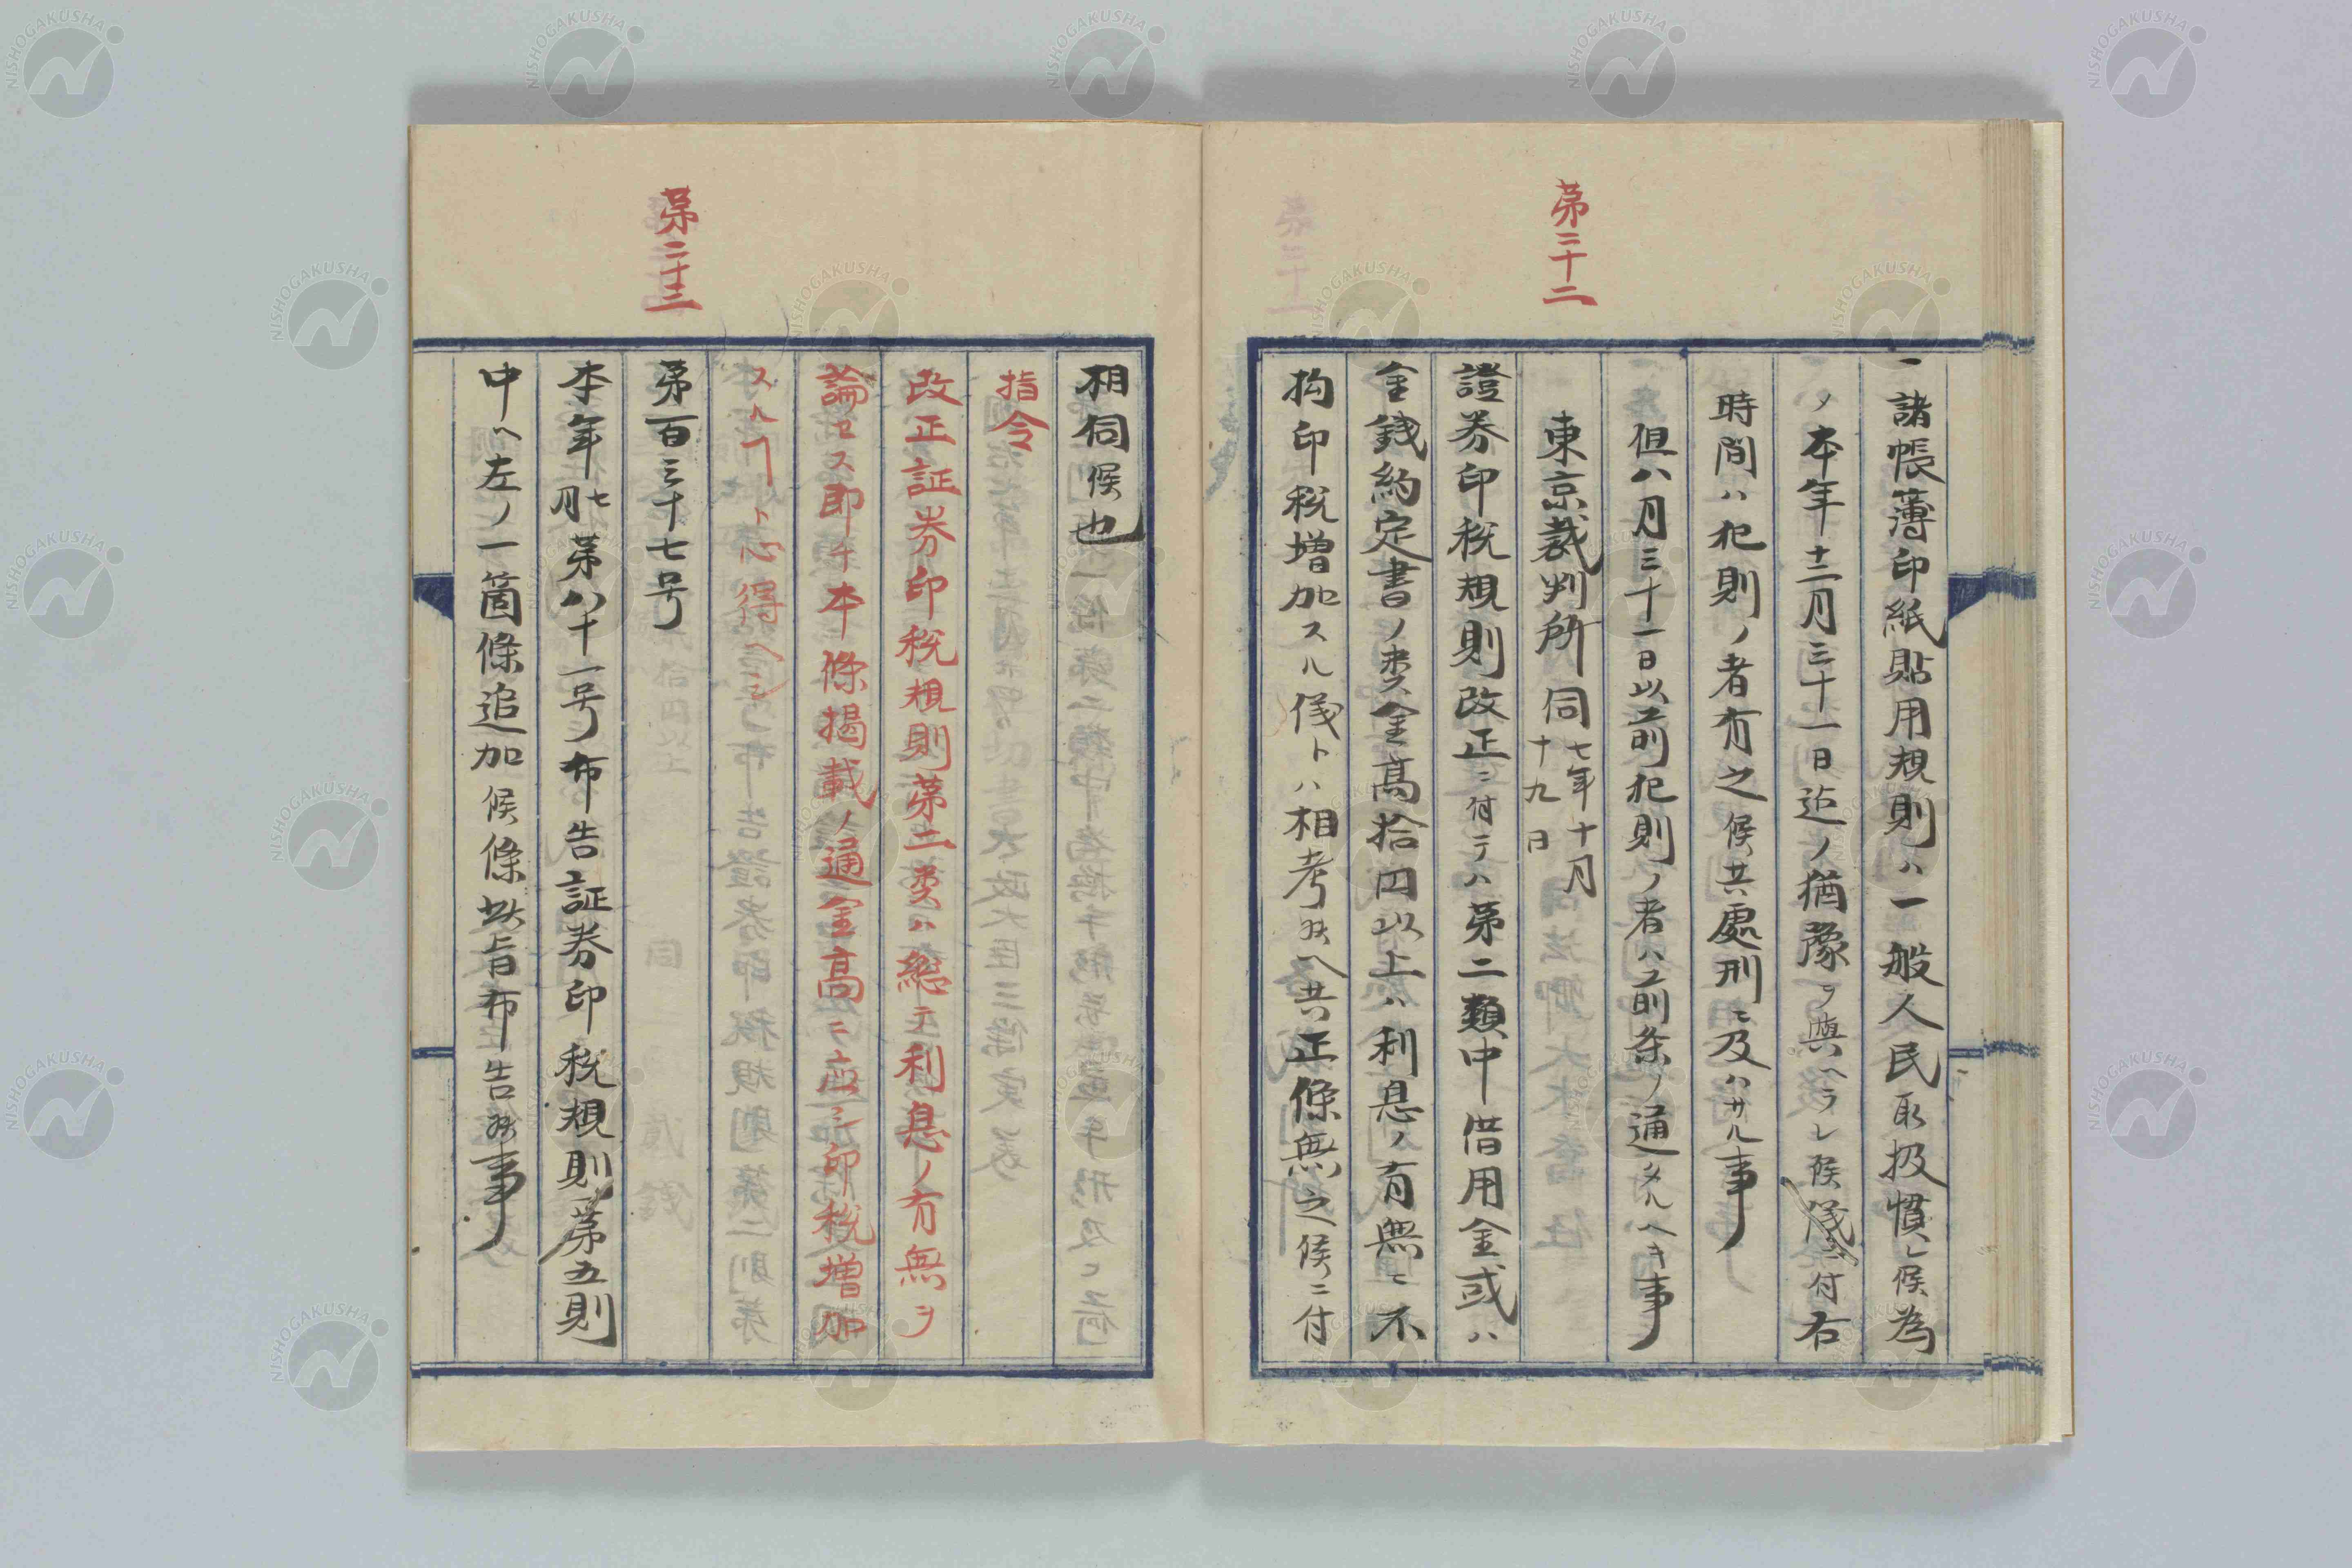 第二十二
一諸帳簿印紙貼用規則ハ一般人民取扱慣レ候為
ノ本年十二月三十一日迄ノ猶豫ヲ與ヘラレ候儀ニ付右
時間ハ犯則ノ者有之候共處刑ニ及ハサル事
但八月三十一日以前犯則ノ者ハ前条ノ通タルヘキ事
東京裁判所伺七年十月
十九日
證券印税規則改正ニ付テハ第二類中借用金或ハ
金銭約定書ノ類金高拾円以上ハ利息ノ有無ニ不
拘印税増加スル儀トハ相考候ヘ共正條無之候ニ付
相伺候也
指令
改正証券印税規則第二類ハ総テ利息ノ有無ヲ
論セス即チ本條掲載ノ通金高ニ應シ印税増加
スルヿト心得ヘシ
第二十三
第百三十七号
本年七月第八十一号布告証券印税規則第五則
中ヘ左ノ一箇條追加候條此旨布告候事
NISHOGAKUSHA